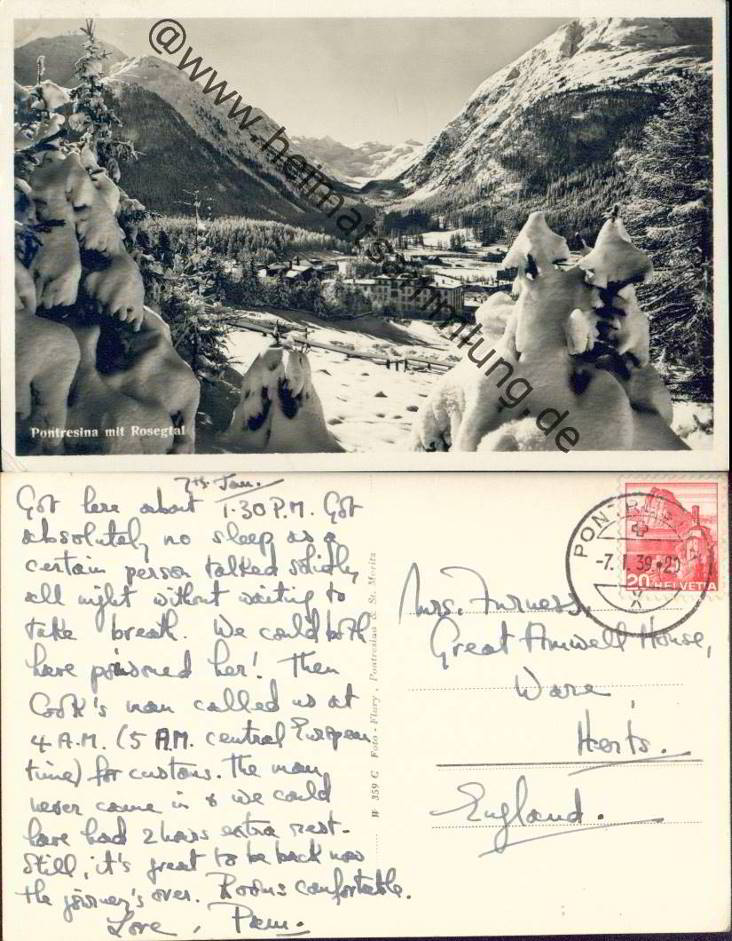 @www.heimatsammlung.de
Pontresina mit Rosegtal
7th Jan.
Got here about 1.30 P.M. Got
absolutely no sleep as a
certain person talked solidly
all night without waiting to
take breath. We could both
have poisoned her! Then
Cook's man called us at
4 A.M. (5 A.M. central European
time) for customs. The man
never came in & we could
have had 2 hours extra rest.
Still, it's great to be back now
the journey's over. Rooms comfortable.
Love, Pam.
W 359 G Foto-Flury, Pontresina & St. Moritz
PONTRESINA
-7.I.39.-20
20 HELVETIA
Mrs. Furness,
Great Amwell House,
Ware,
Herts.
England.